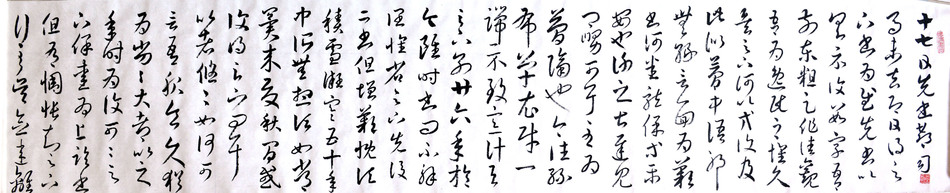 十七日先書郗司
馬未去即日得足
下書為慰先書以
具示復數字吾
前東粗足作佳觀
吾為逸民之懷久
矣足下何以方復及
此似夢中語耶
無緣言面為歎
書何能悉龍保等平
安也謝之甚遲見
卿舅可耳至為
簡隔也今往絲
布單衣財一
端示致意計與
足下別廿六年於
今雖時書問不解
闊懷省足下先後
二書但增歎慨頃
積雪凝寒五十年
中所無想頃如常
冀來夏秋間或
復得足下問耳
比者悠悠如何可
言吾服食久猶
為劣劣大都比之
年時為復可可足
下保愛為上臨書
但有惆悵知足下
行至吳念違離